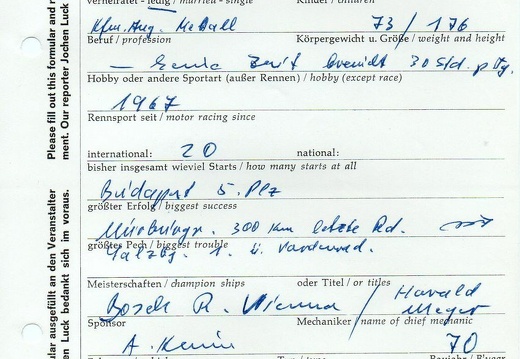 Verheiratet - ledig / married - single Kinder / children
Kfm. Ang. Metall 73 / 176
Beruf / profession Körpergewicht u. Größe / weight and height
— keine Zeit 30 Std. p. Tg.
Hobby oder andere Sportart (außer Rennen) / hobby (except race)
1967
Rennsport seit / motor racing since
international: 20 national:
bisher insgesamt wieviel Starts / how many starts at all
Budapest 5. Plz
größter Erfolg / biggest success
Nürburgr. 300 Km letzte Rd.
größtes Pech / biggest trouble
Salzbg. 1. ü.
Meisterschaften / champion ships oder Titel / or titles
Bosch R. Vienna / Harald Meyer
Sponsor Mechaniker / name of chief mechanic
A. 70
Please fill out this formular and r
ment. Our reporter Jochen Luck
ular ausgefüllt an den Veranstalter
en Luck bedankt sich im voraus.